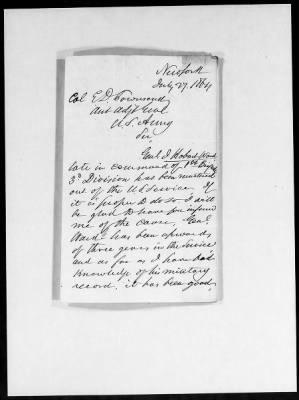 New York
July 27, 1864
Col E. D. Townsend
Asst Adjt Genl
U.S. Army
Sir,
Genl J. Hobart Ward
late in command of 1st Brig
3d Division has been mustered
out of the U.S. Service. If
it is proper to do so I will
be glad to have you inform
me of the cause, Genl
Ward has been upwards
of three years in the service
and as far as I have had
knowledge of his military
record, it has been good,